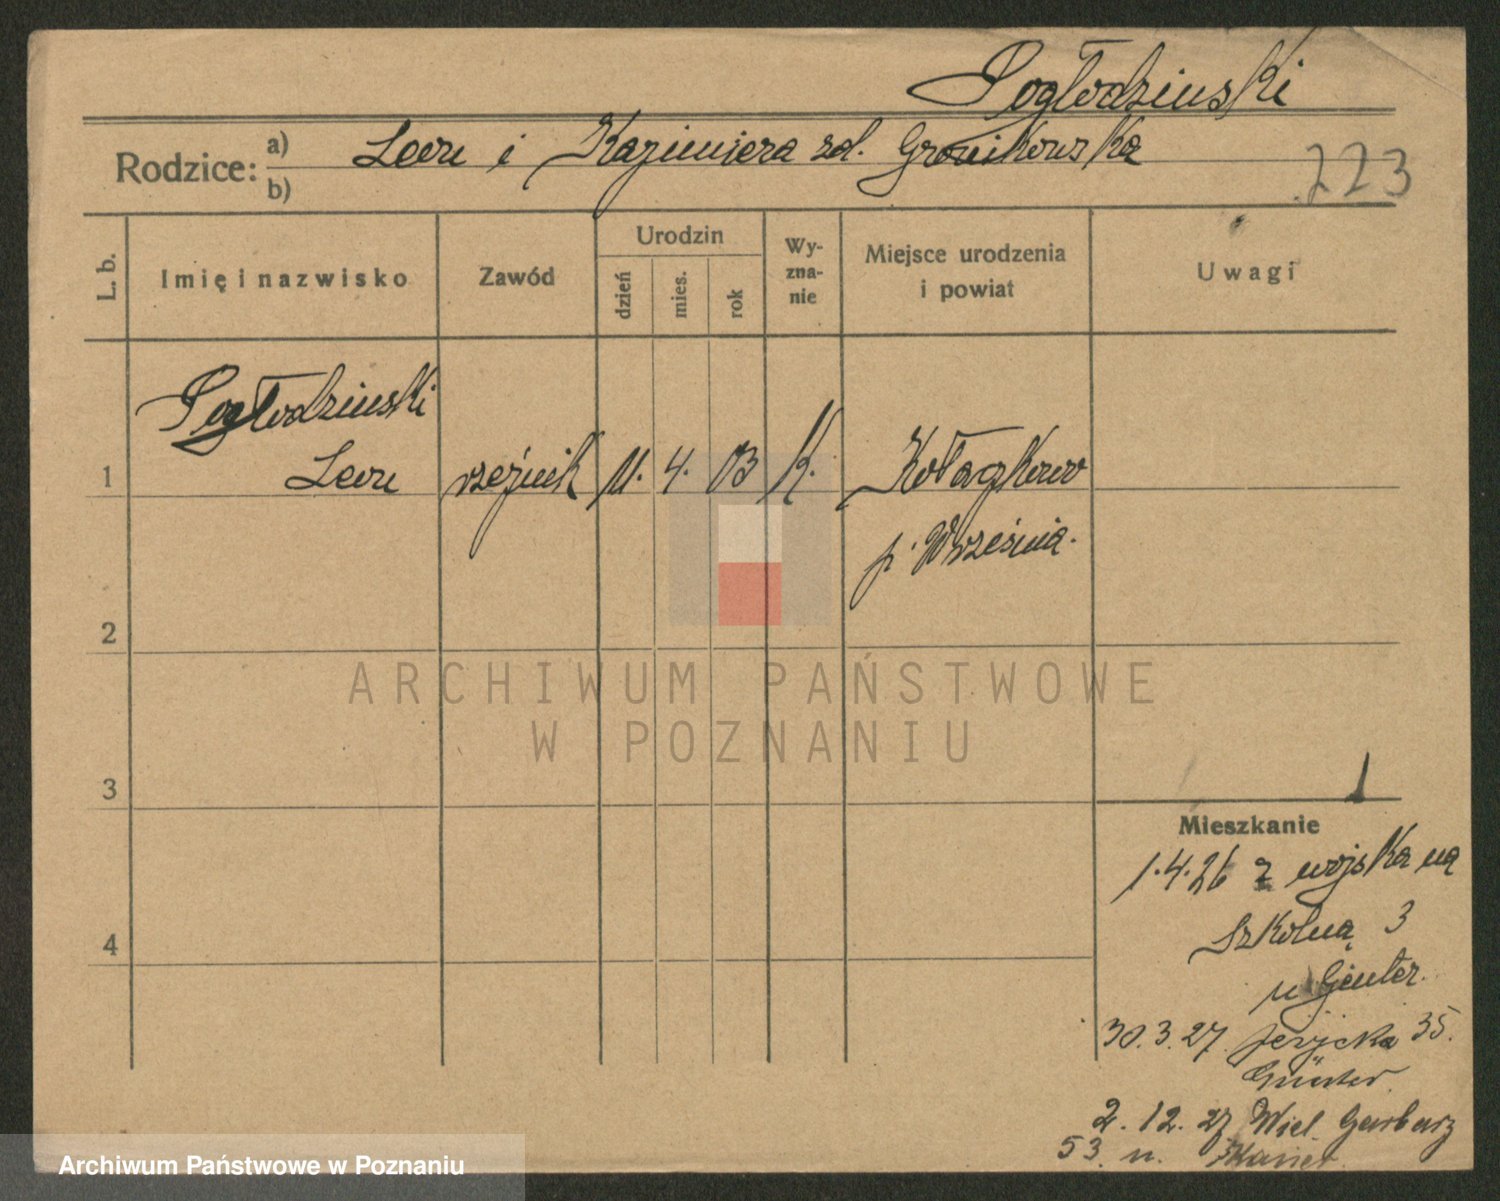 Pogłodziński
Rodzice: a) Leon i Kazimiera zd. Gronikowska
b)
223
L. b. Imię i nazwisko Zawód Urodzin dzień mies. rok Wy-zna-nie Miejsce urodzenia i powiat Uwagi
Pogłodziński
1 Leon rzeźnik 11. 4. 03 k. Kołaczkowo
p. Września.
2
ARCHIWUM PAŃSTWOWE
W POZNANIU
3
Mieszkanie
1.4.26 z wojska na
4 Szkolną 3
u Genter.
30.3.27 Jeżycka 35.
Günter.
2. 12. 27 Wiel. Garbary
53. u.
Archiwum Państwowe w Poznaniu